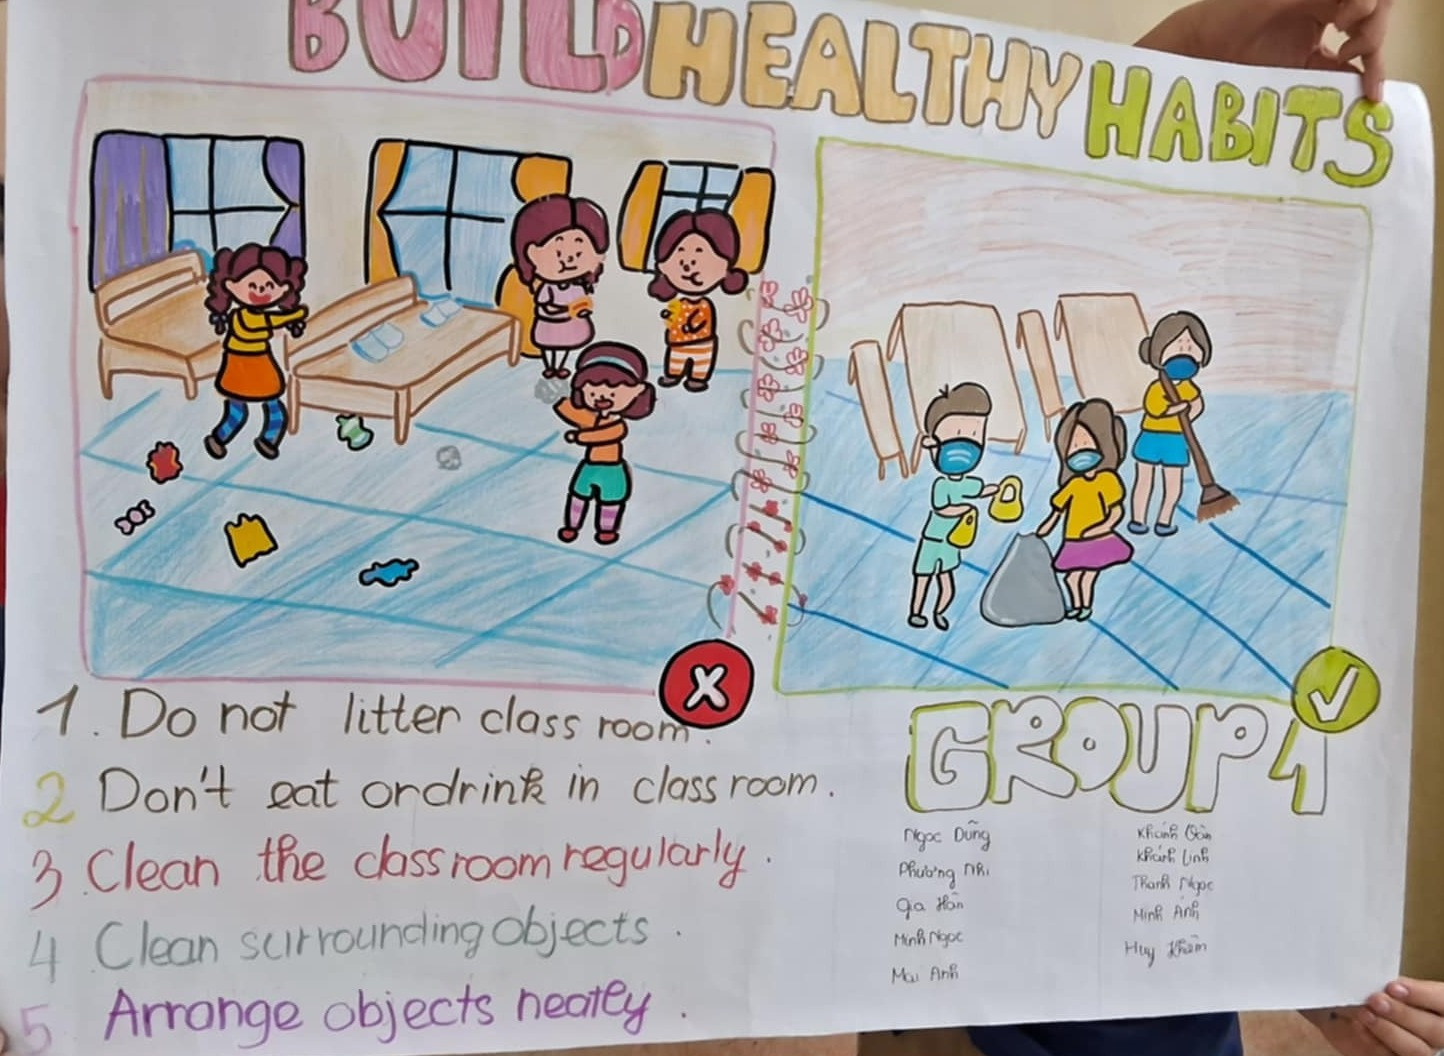 BUILD HEALTHY HABITS
1. Do not litter class room.
2 Don't eat ordrink in class room.
3. Clean the classroom regularly.
4 Clean surrounding objects.
5. Arrange objects neatly.
GROUP 1
Ngọc Dũng
Phương Nhi
Gia Hân
Minh Ngọc
Mai Anh
Khánh
Khánh Linh
Thanh Ngọc
Minh Ánh
Huy